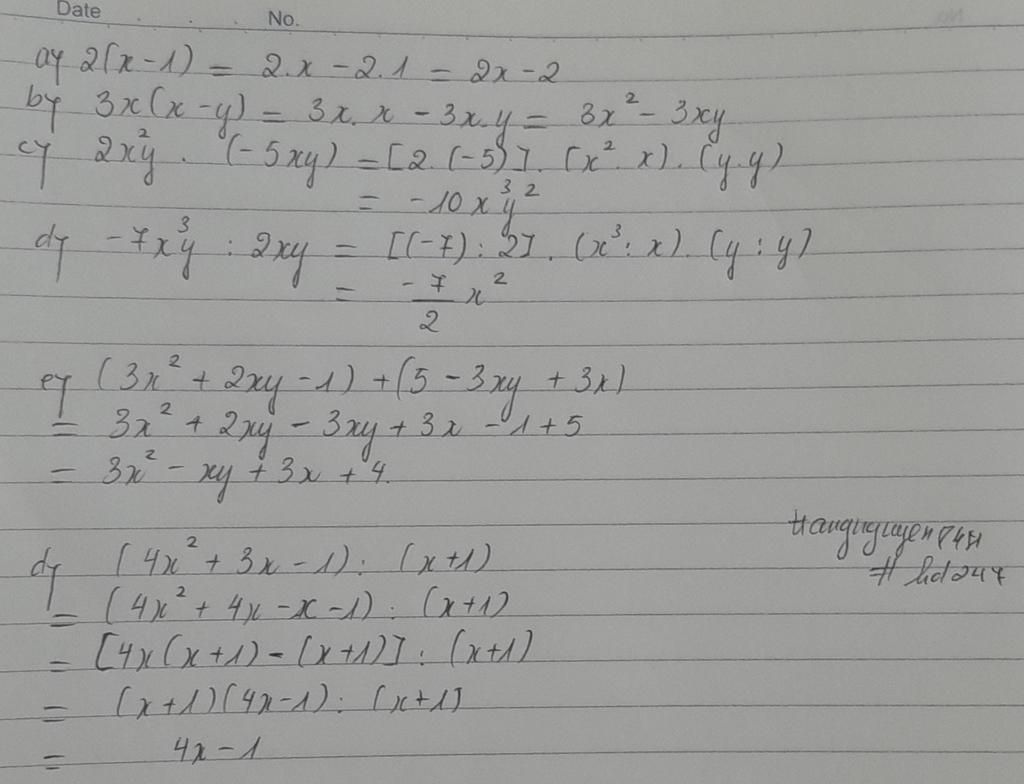 Date No.
a) 2(x-1) = 2.x - 2.1 = 2x - 2
b) 3x(x-y) = 3x.x - 3x.y = 3x² - 3xy
c) 2x²y . (-5xy) = [2.(-5)] . (x².x).(y.y)
= -10x³y²
d) -7x³y : 2xy = [(-7):2] . (x³:x).(y:y)
= -7/2 x²
e) (3x² + 2xy - 1) + (5 - 3xy + 3x)
= 3x² + 2xy - 3xy + 3x - 1 + 5
= 3x² - xy + 3x + 4.
d) (4x² + 3x - 1) : (x+1)
= (4x² + 4x - x - 1) : (x+1)
= [4x(x+1) - (x+1)] : (x+1)
= (x+1)(4x-1) : (x+1)
= 4x - 1
# hd247